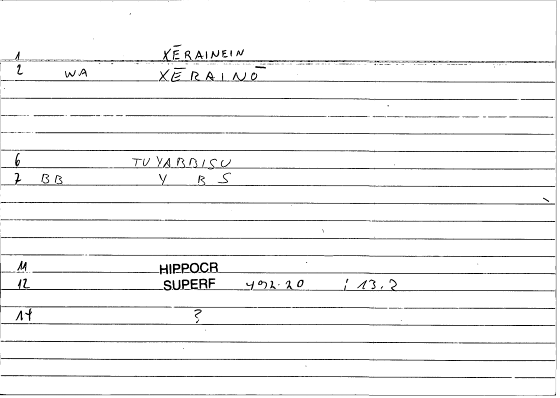 1 XĒRAINEIN
2 WA XĒRAINŌ
6 TUYABBISU
7 BB Y B S
11 HIPPOCR
12 SUPERF 492.20 ; 13.2
17 ?